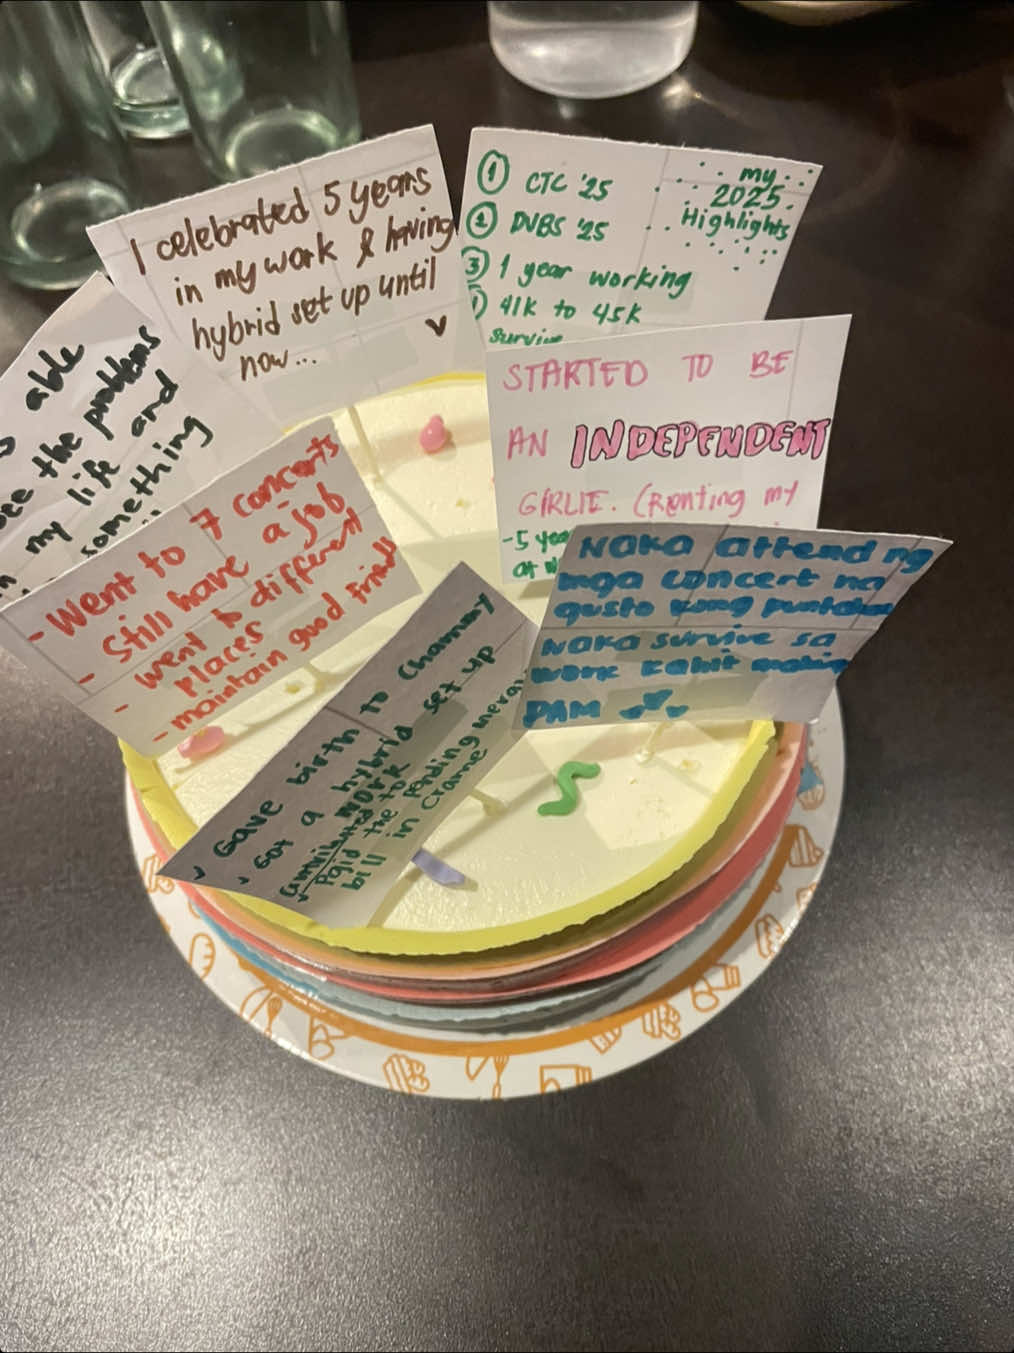 I celebrated 5 years
in my work & having
hybrid set up until
now...
my
2025
Highlights
① CTC '25
② DVBS '25
③ 1 year working
41K to 45K
survive
able
the problems
my life and
something
- Went to 7 concerts
- Still have a job
- went to different
places
- maintain good friends
STARTED TO BE
AN INDEPENDENT
GIRLIE. (Renting my
- 5 yea
at
Naka attend ng
mga concert na
gusto kong puntahan
Naka survive sa
work kahit
PAM
Gave birth to Chamoy
Got a hybrid set up
work
Paid the pending
bill in Crame